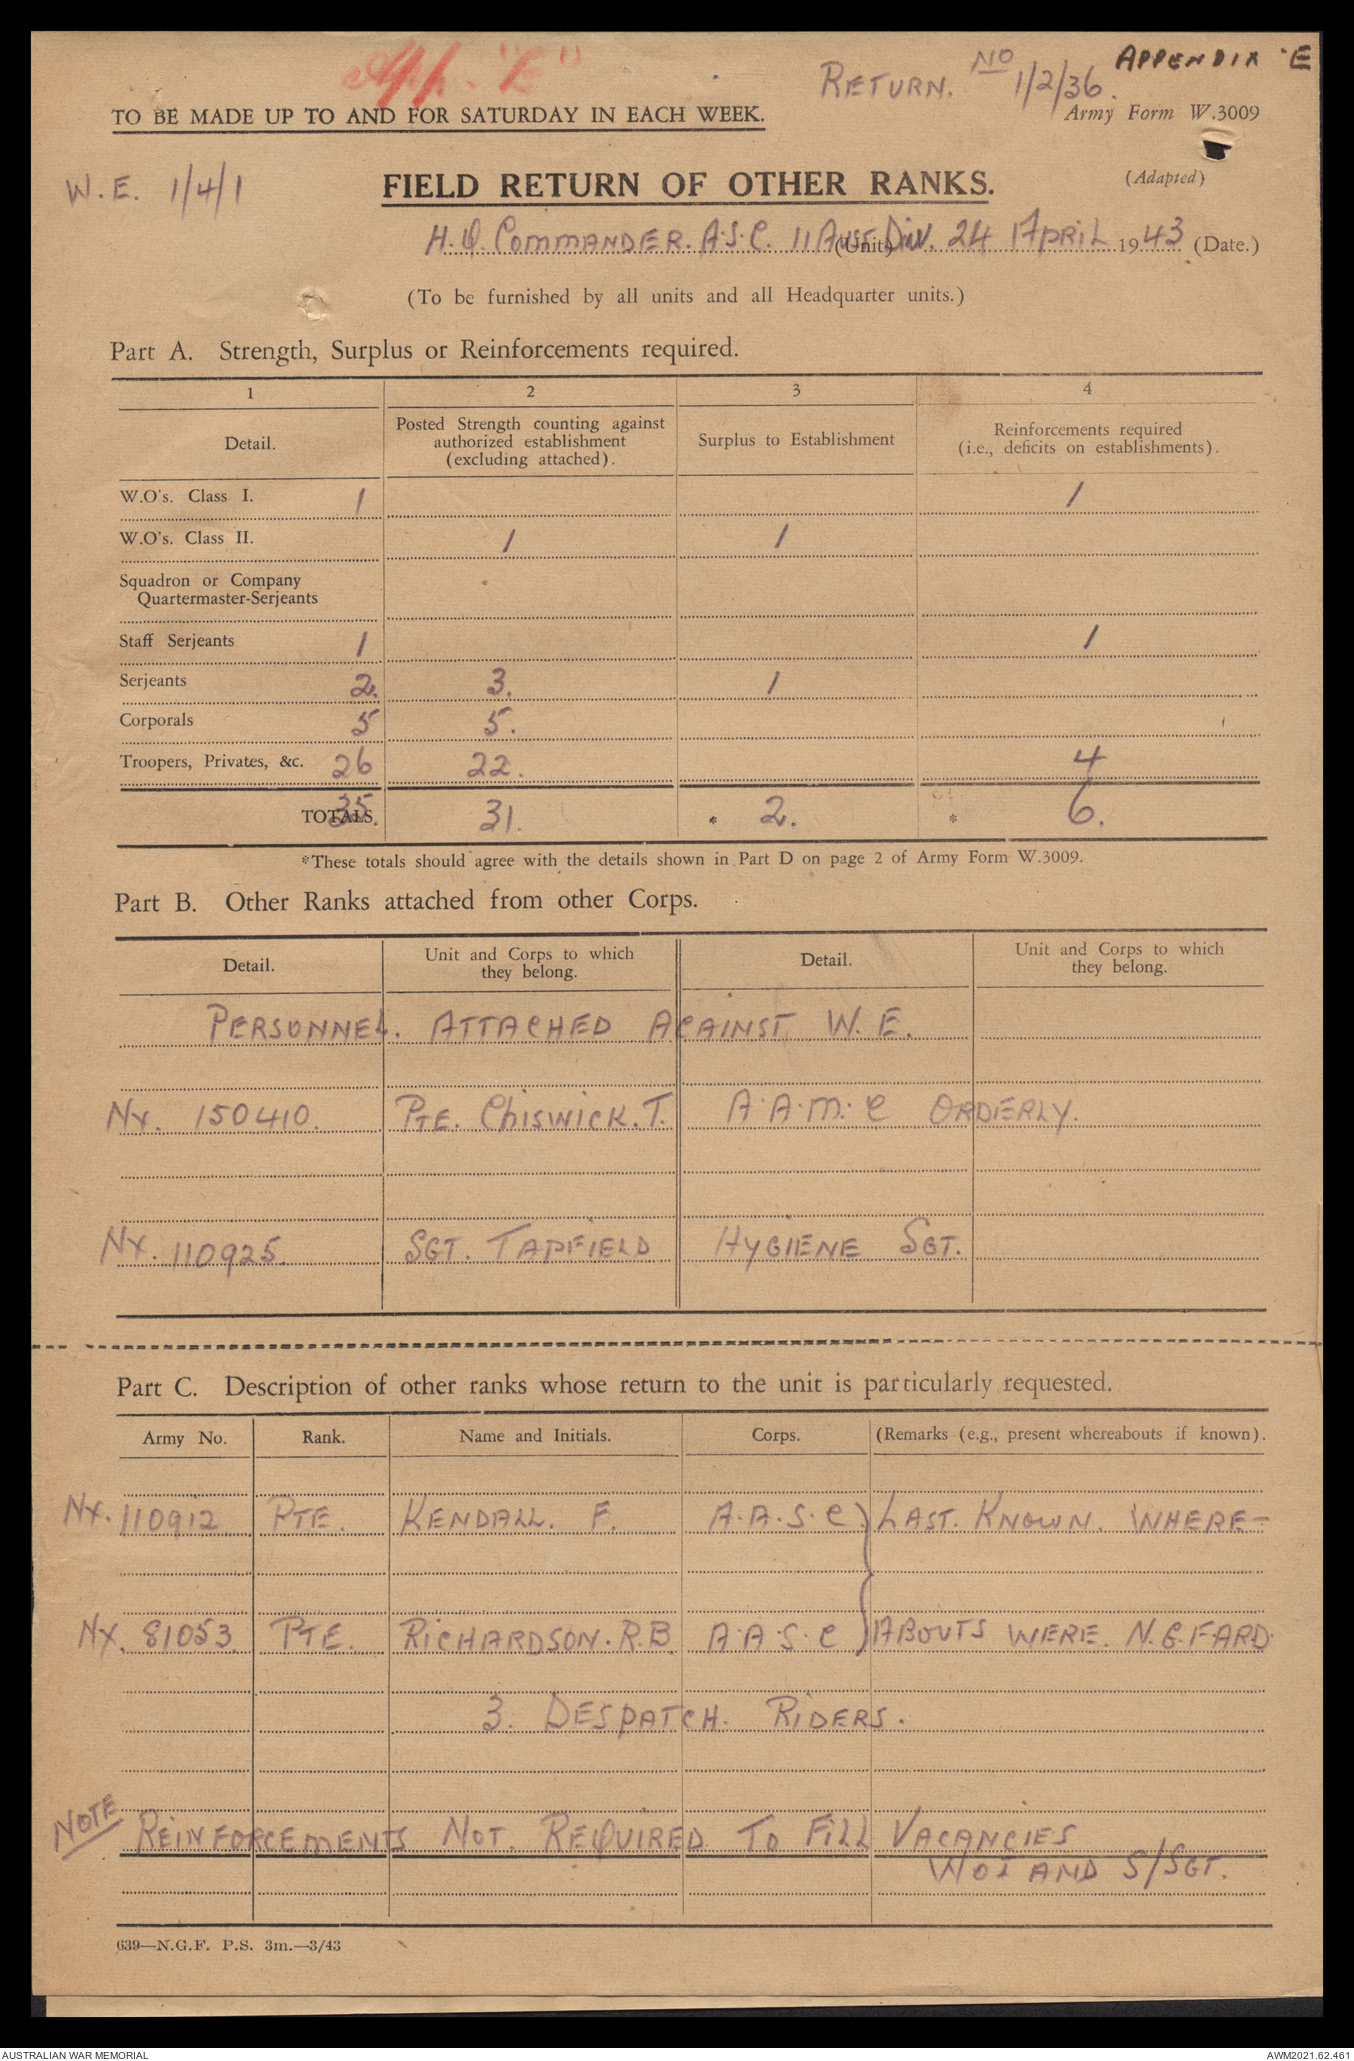 App. "E"
RETURN. NO 1/2/36. APPENDIX 'E
TO BE MADE UP TO AND FOR SATURDAY IN EACH WEEK.
Army Form W.3009
(Adapted)
W.E. 1/4/1
FIELD RETURN OF OTHER RANKS.
H.Q. COMMANDER. A.S.C. 11 AUST DIV. (Unit) 24 APRIL 1943 (Date.)
(To be furnished by all units and all Headquarter units.)
Part A. Strength, Surplus or Reinforcements required.
1 2 3 4
Detail. Posted Strength counting against authorized establishment (excluding attached). Surplus to Establishment Reinforcements required (i.e., deficits on establishments).
W.O's. Class I. 1 1
W.O's. Class II. 1 1
Squadron or Company
Quartermaster-Serjeants
Staff Serjeants 1 1
Serjeants 2. 3. 1
Corporals 5 5.
Troopers, Privates, &c. 26 22. 4
TOTALS 35. 31. * 2. * 6.
*These totals should agree with the details shown in Part D on page 2 of Army Form W.3009.
Part B. Other Ranks attached from other Corps.
Detail. Unit and Corps to which they belong. Detail. Unit and Corps to which they belong.
PERSONNEL. ATTACHED AGAINST W.E.
NX. 150410. PTE. CHISWICK. T. A.A.M.C ORDERLY.
NX. 110925. SGT. TAPFIELD HYGIENE SGT.
Part C. Description of other ranks whose return to the unit is particularly requested.
Army No. Rank. Name and Initials. Corps. (Remarks (e.g., present whereabouts if known).
NX. 110912 PTE. KENDALL. F. A.A.S.C LAST. KNOWN. WHERE-
NX. 81053 PTE. RICHARDSON. R.B A.A.S.C ABOUTS WERE. N.G.F.ARD.
3. DESPATCH. RIDERS.
NOTE REINFORCEMENTS NOT. REQUIRED TO FILL VACANCIES
WOI AND S/SGT.
639—N.G.F. P.S. 3m.—3/43
AUSTRALIAN WAR MEMORIAL AWM2021.62.461